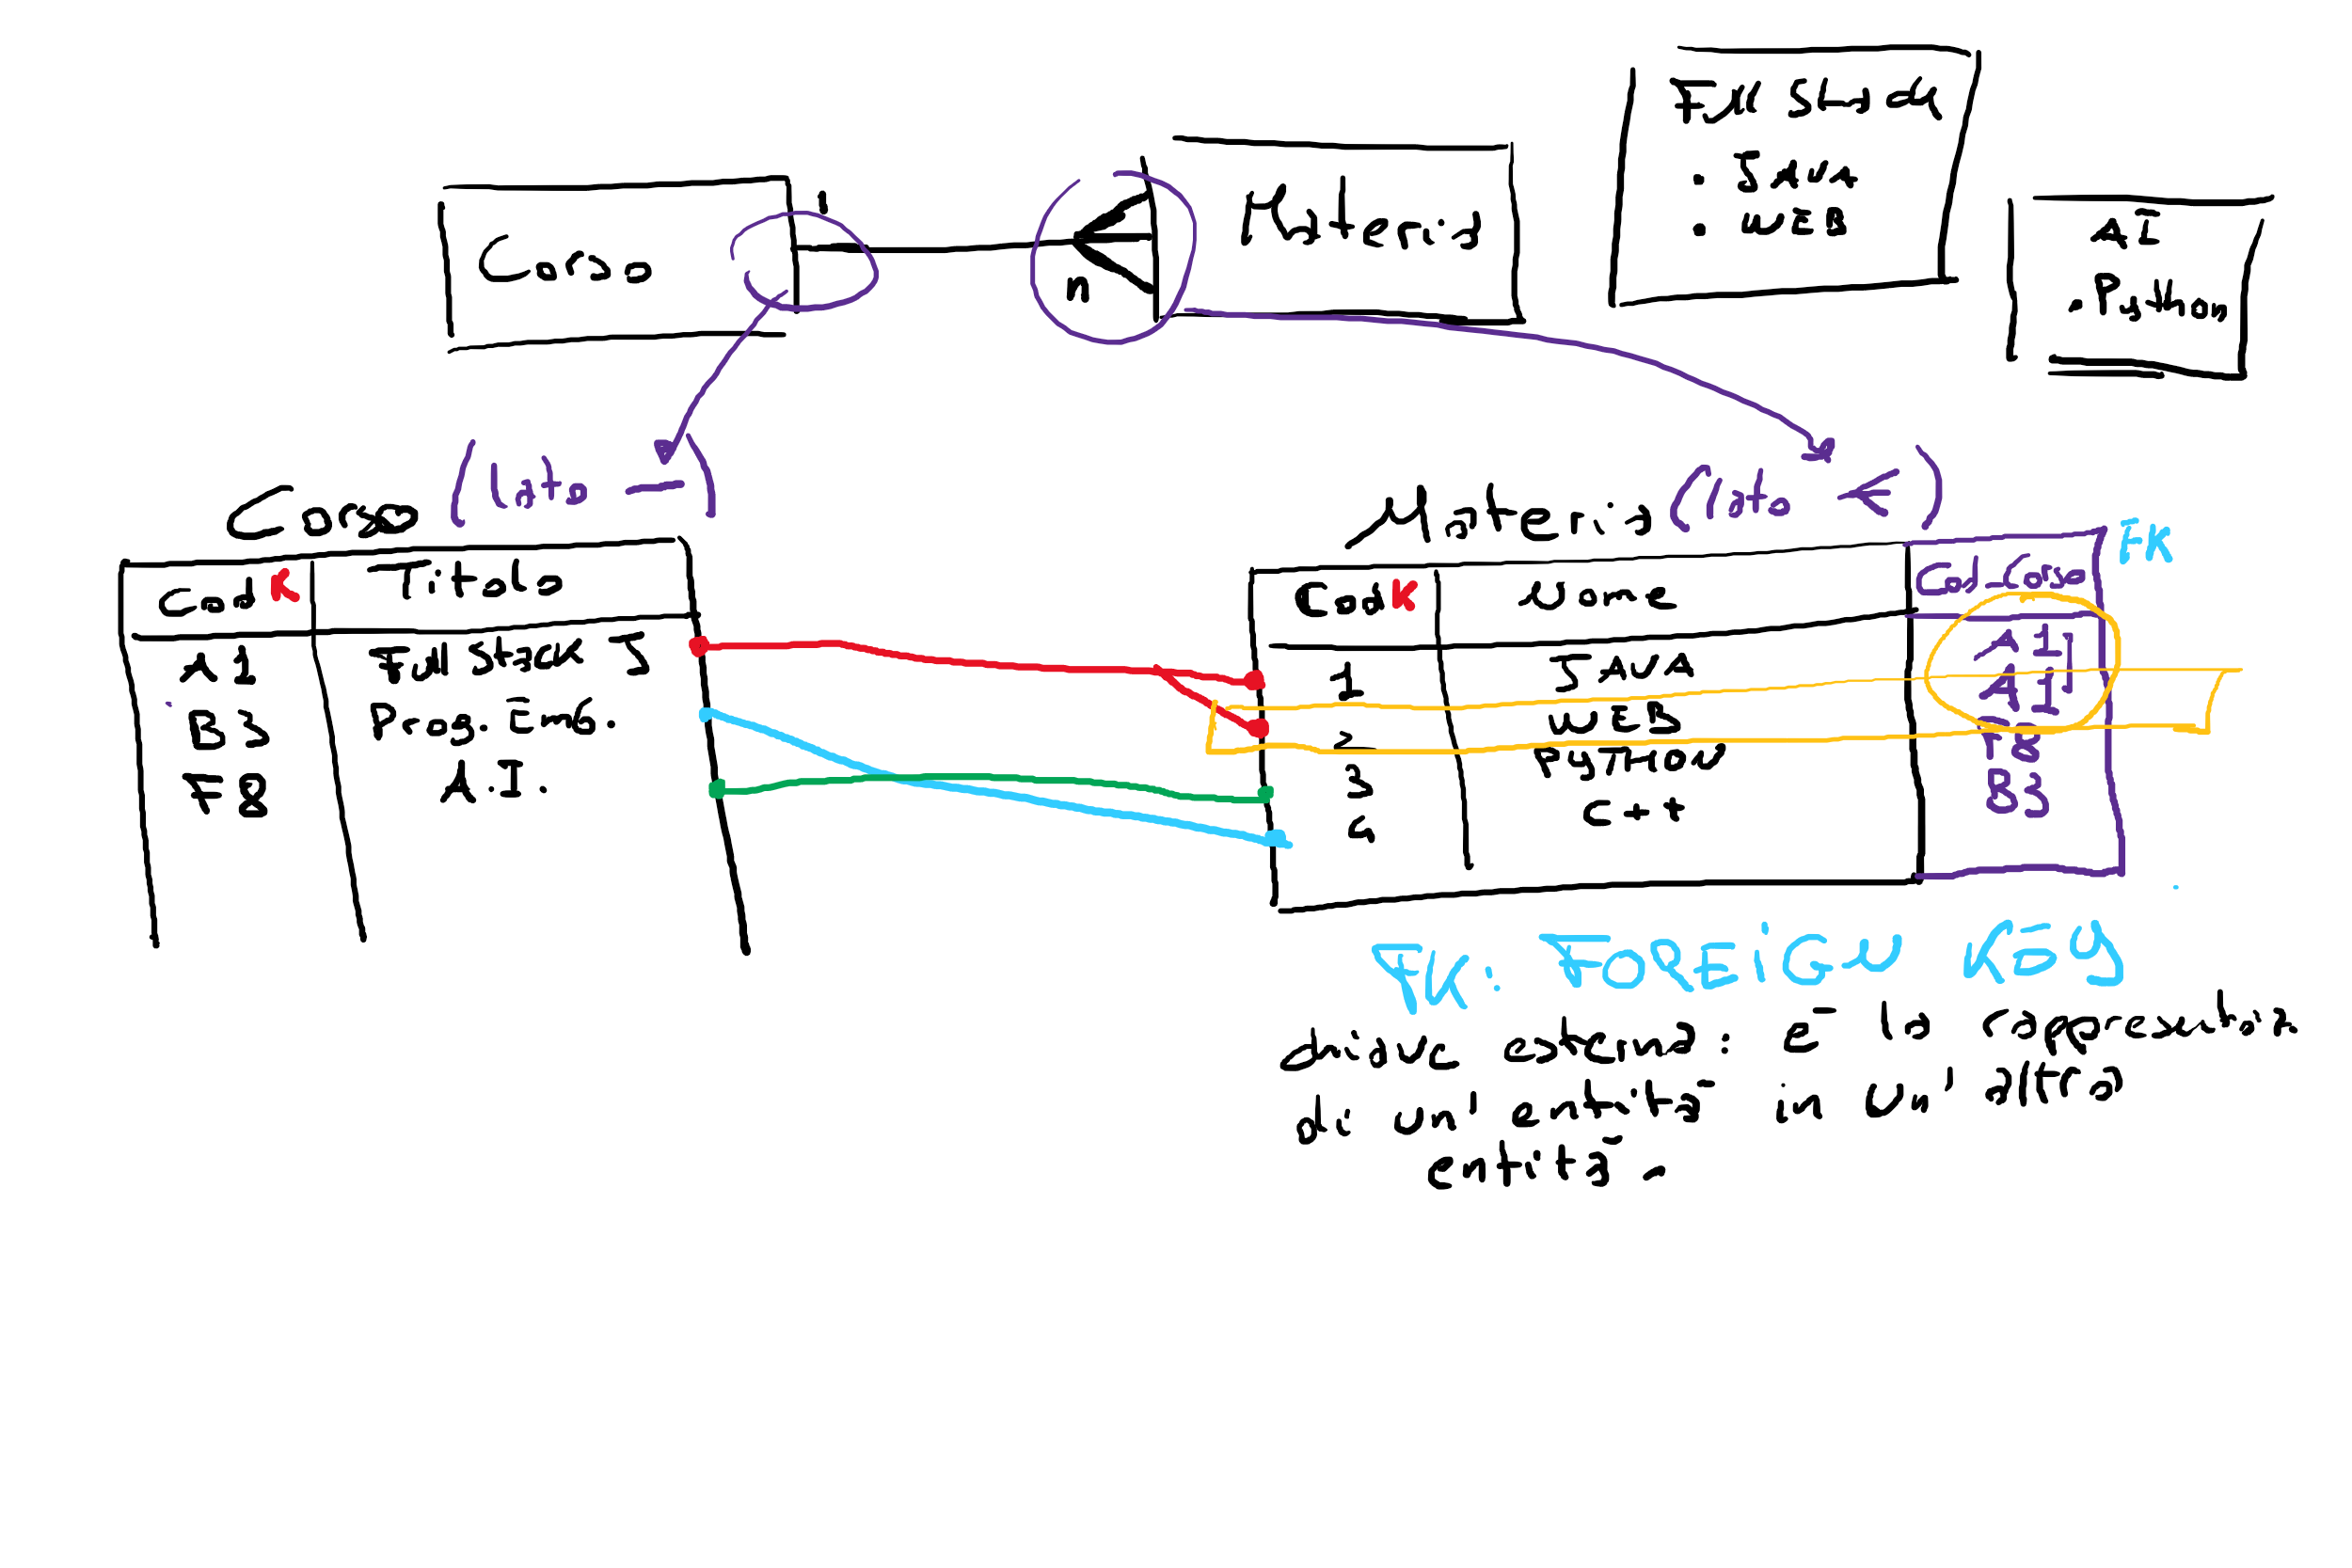 Corso
1
n
Materia
Full Stack
. JAVA
. WEB
AI
. Python
(lato -)
Corso
Materia (lato <)
Cod K Titolo
A1 Fullstack J
B3 Prog. Emb.
F8 A.I.
Cod K Nome Cod-Corso FK
1 JAVA A1
2 WEB A1
3 PYTHON F8
4 C++ B3
FK: FOREIGN KEY
chiave esterna: è la rappresentazione
di un'entità in un'altra
entità.